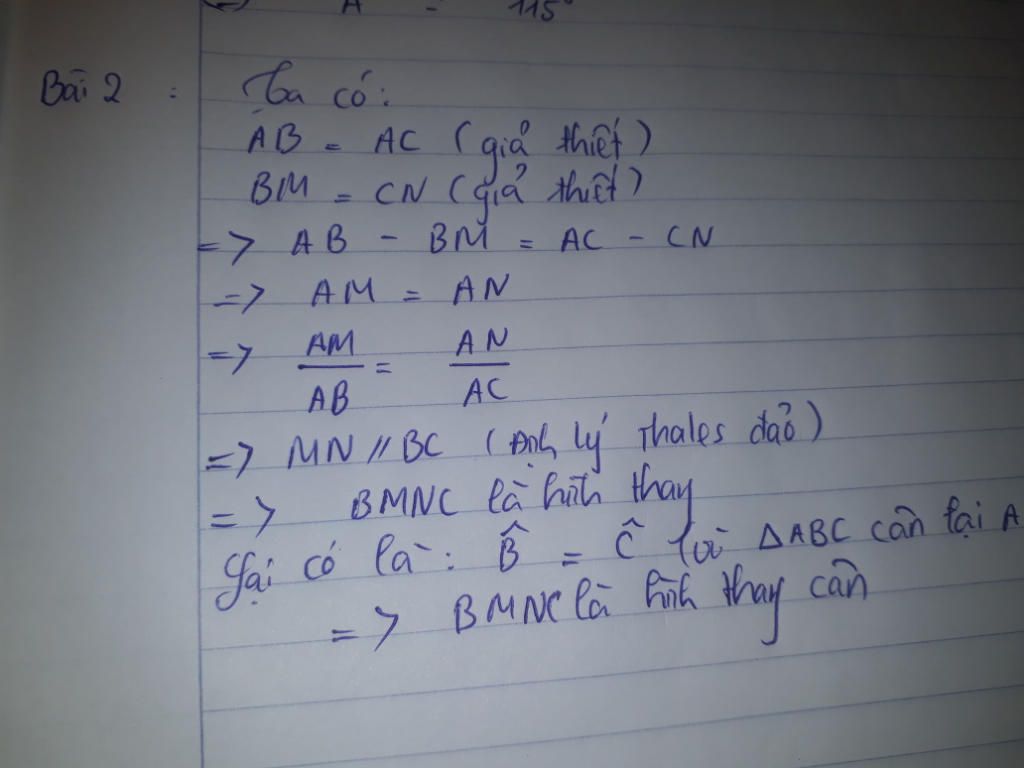 A = 115°
Bài 2 : Ta có:
AB = AC (giả thiết)
BM = CN (giả thiết)
=> AB - BM = AC - CN
=> AM = AN
=> AM/AB = AN/AC
=> MN // BC (Định lý Thales đảo)
=> BMNC là hình thay
Lại có là: B̂ = Ĉ vì ΔABC cân tại A
=> BMNC là hình thay cân